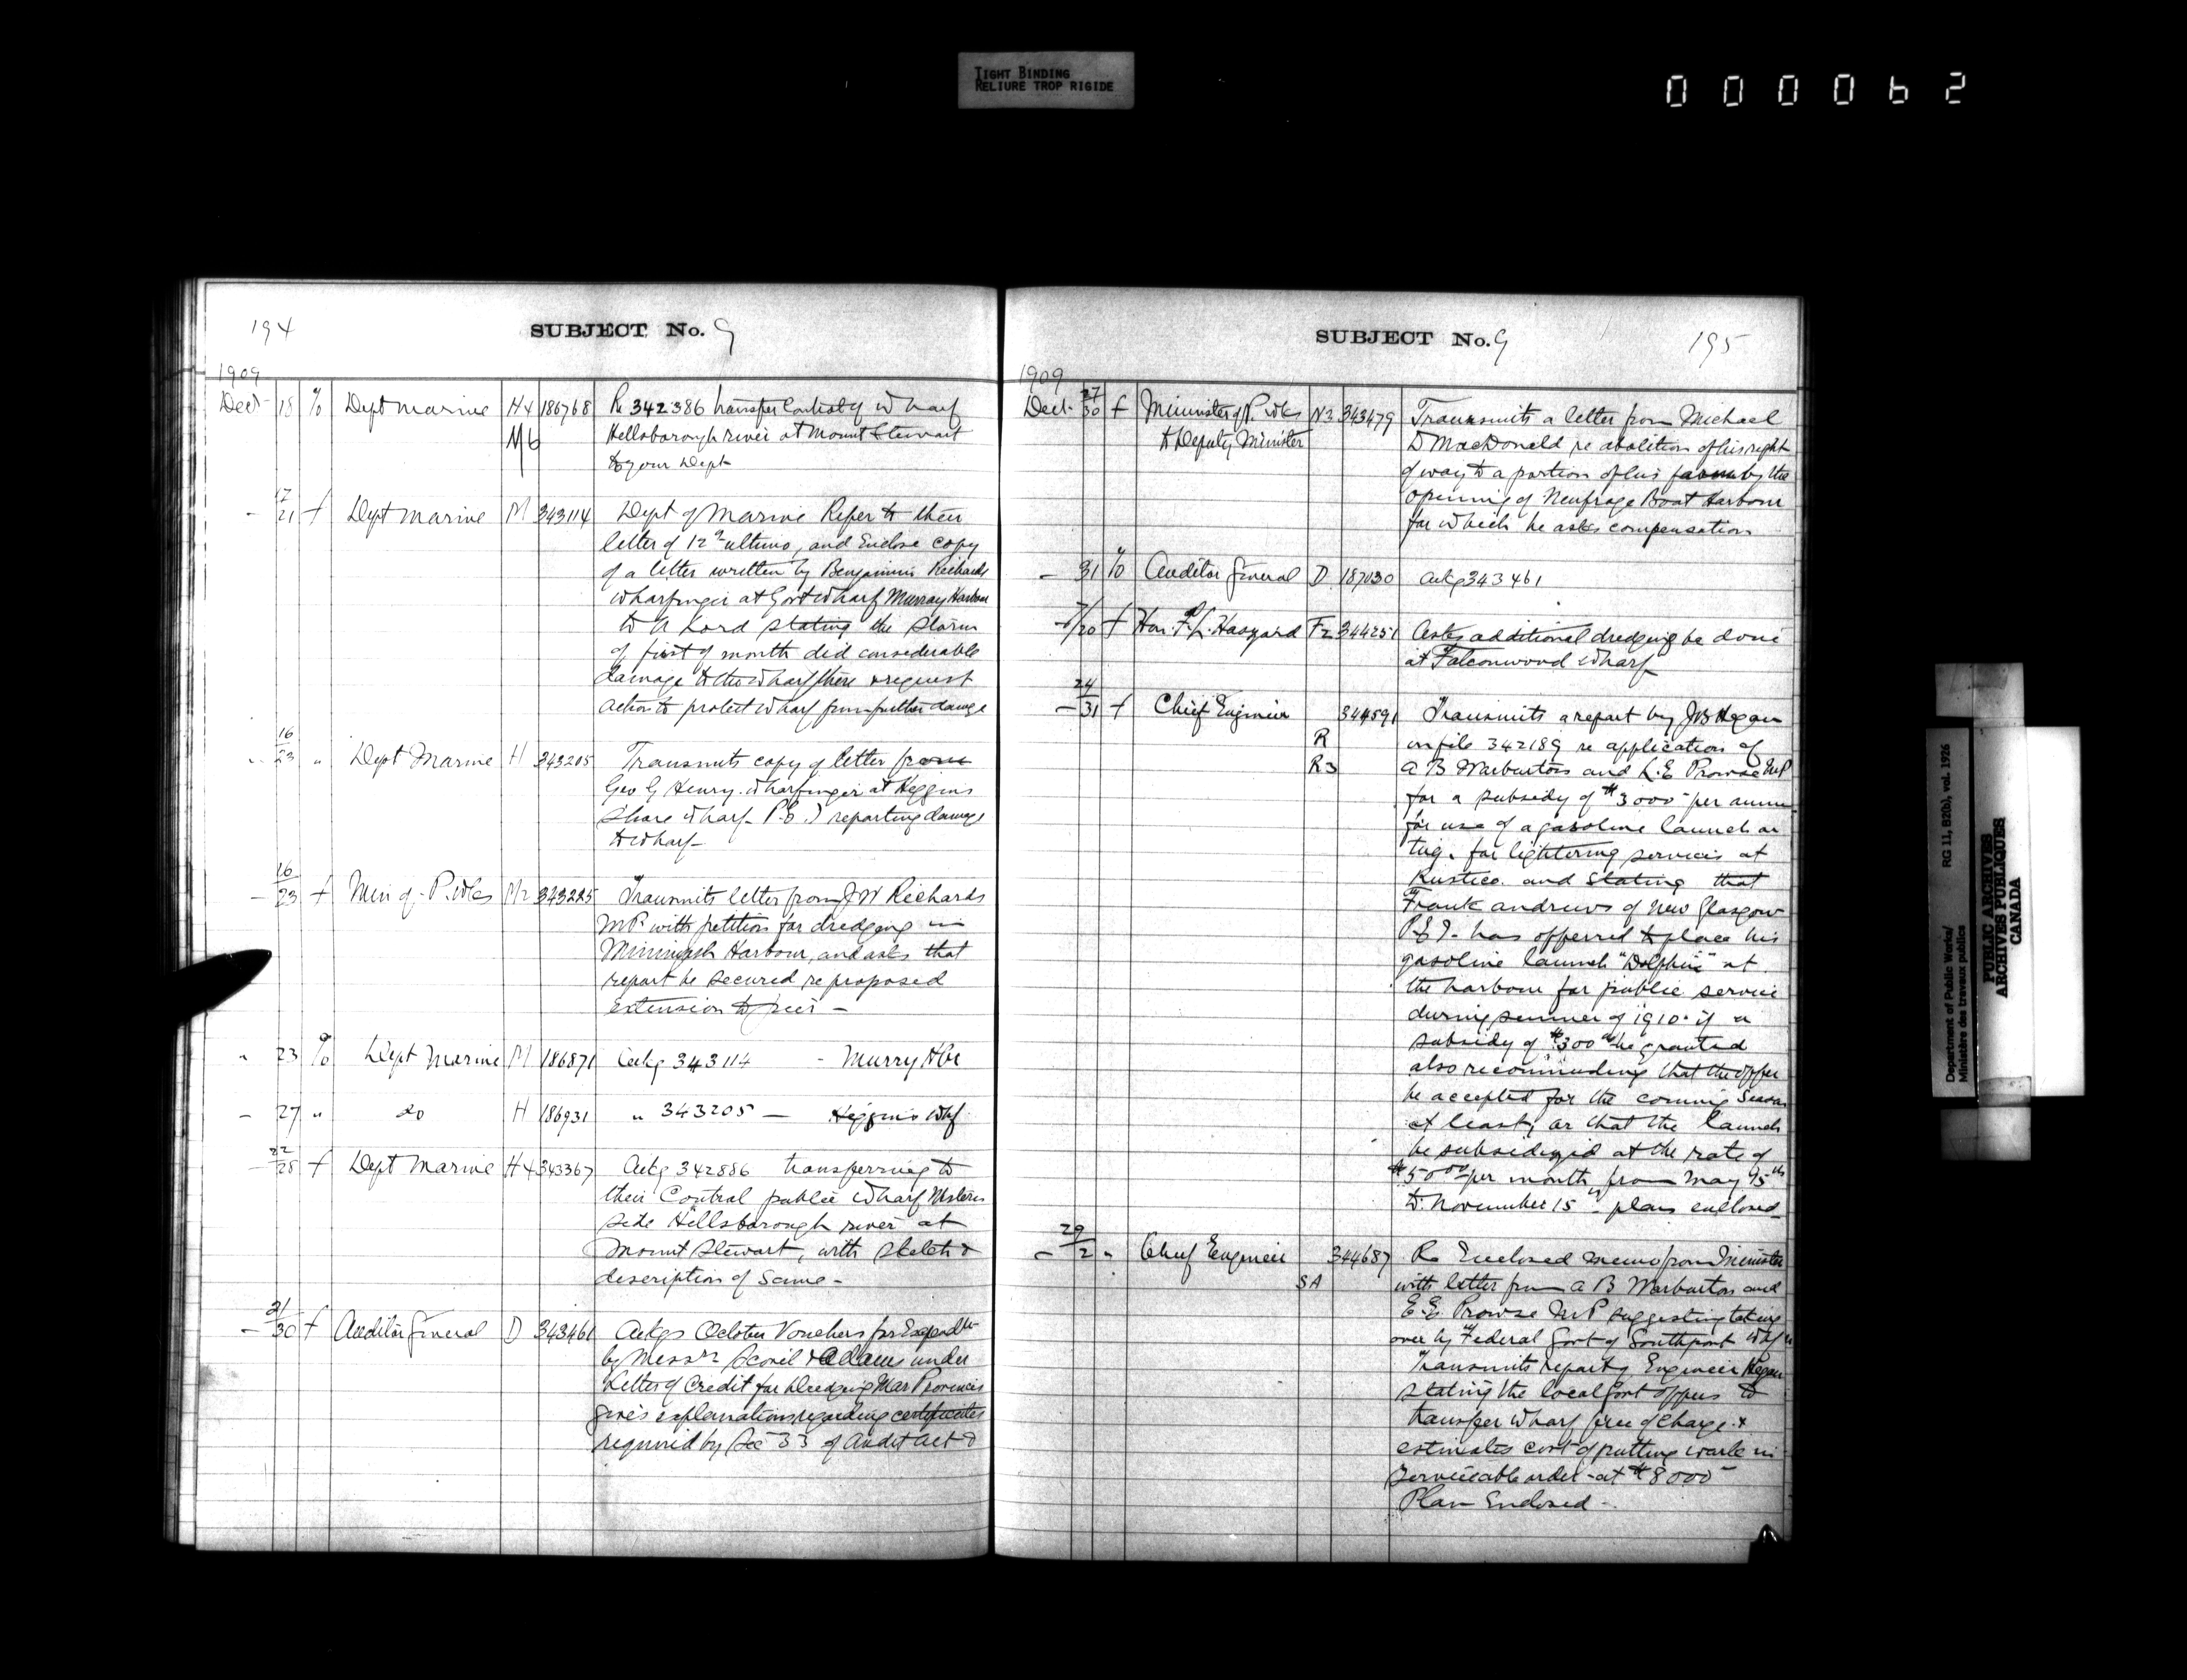 TIGHT BINDING
RELIURE TROP RIGIDE
000062
194
SUBJECT No. 9
1909
Dec 18 % Dept Marine H4 186768 Re 342386 transfer Control of Wharf
M6 Hillsborough river at Mount Stewart
to your Dept
17/21 f Dept Marine M 343114 Dept of Marine Refer to their
letter of 12th ultimo, and Enclose copy
of a letter written by Benjamin Richards
Wharfinger at Govt Wharf Murray Harbour
to A Lord stating the Storm
of first of month did considerable
damage to the Wharf there & request
action to protect Wharf from further damage
16/23 " Dept Marine H 343205 Transmits copy of letter from
Geo G Henry. Wharfinger at Higgins
Shore Wharf P.E.I reporting damage
to Wharf
16/23 f Min of P. Wks M2 343225 Transmits letter from J W Richards
MP. with petition for dredging in
Miminigash Harbour, and asks that
report be secured re proposed
extension to pier -
" 23 % Dept Marine M 186871 Ackg 343114 - Murry Hbr
- 27 " do H 186931 " 343205 - Higgins Whf
22/28 f Dept Marine H4 343367 Ackg 342886 transferring to
their Control public Wharf Western
side Hillsborough river at
Mount Stewart, with sketch &
description of Same -
21/30 f Auditor General D 343461 Ackgs October Vouchers for Expendte
by Messrs Scovil & Adams under
Letter of Credit for Dredging Mar Provinces
gives explanations regarding certificates
required by Sec 33 of Audit Act &
SUBJECT No. 9
195
1909
Dec. 27/30 f Minister of P. Wks N3 343479 Transmits a letter from Michael
to Deputy Minister D MacDonald re abolition of his right
of way to a portion of his farm by the
opening of Neufrage Boat Harbour
for which he asks compensation
- 31 % Auditor General D 187030 Ackg 343461
f Hon. F. L. Haszard F2 344251 Asks additional dredging be done
at Falconwood Wharf
24/31 f Chief Engineer 344591 Transmits a report by J B Hegan
R on file 342189 re application of
R3 A B Warburton and L. E Prowse MP
for a subsidy of $3000 - per annum
for use of a gasoline launch or
tug. for lightering services at
Rustico. and stating that
Frank Andrews of New Glasgow
P.E.I. has offerred to place his
gasoline launch "Dolphin" at
the harbour for public service
during summer of 1910. if a
subsidy of $300 00 be granted
also recommending that the offer
be accepted for the coming Season
at least, or that the launch
be subsidized at the rate of
$50 00 per month, from May 15th
to November 15th - plans enclosed
29/2 " Chief Engineer 344687 Re Enclosed memo from Minister
SA with letter from A B Warburton and
E. E. Prowse MP suggesting taking
over by Federal Govt of Southport Whf
Transmits report of Engineer Hegan
stating the local Govt offers to
transfer Wharf free of charge. &
estimates cost of putting work in
serviceable order - at $8000 -
Plan Enclosed -
Department of Public Works/ RG 11, B2(b), vol. 1926
Ministère des travaux publics
PUBLIC ARCHIVES
ARCHIVES PUBLIQUES
CANADA